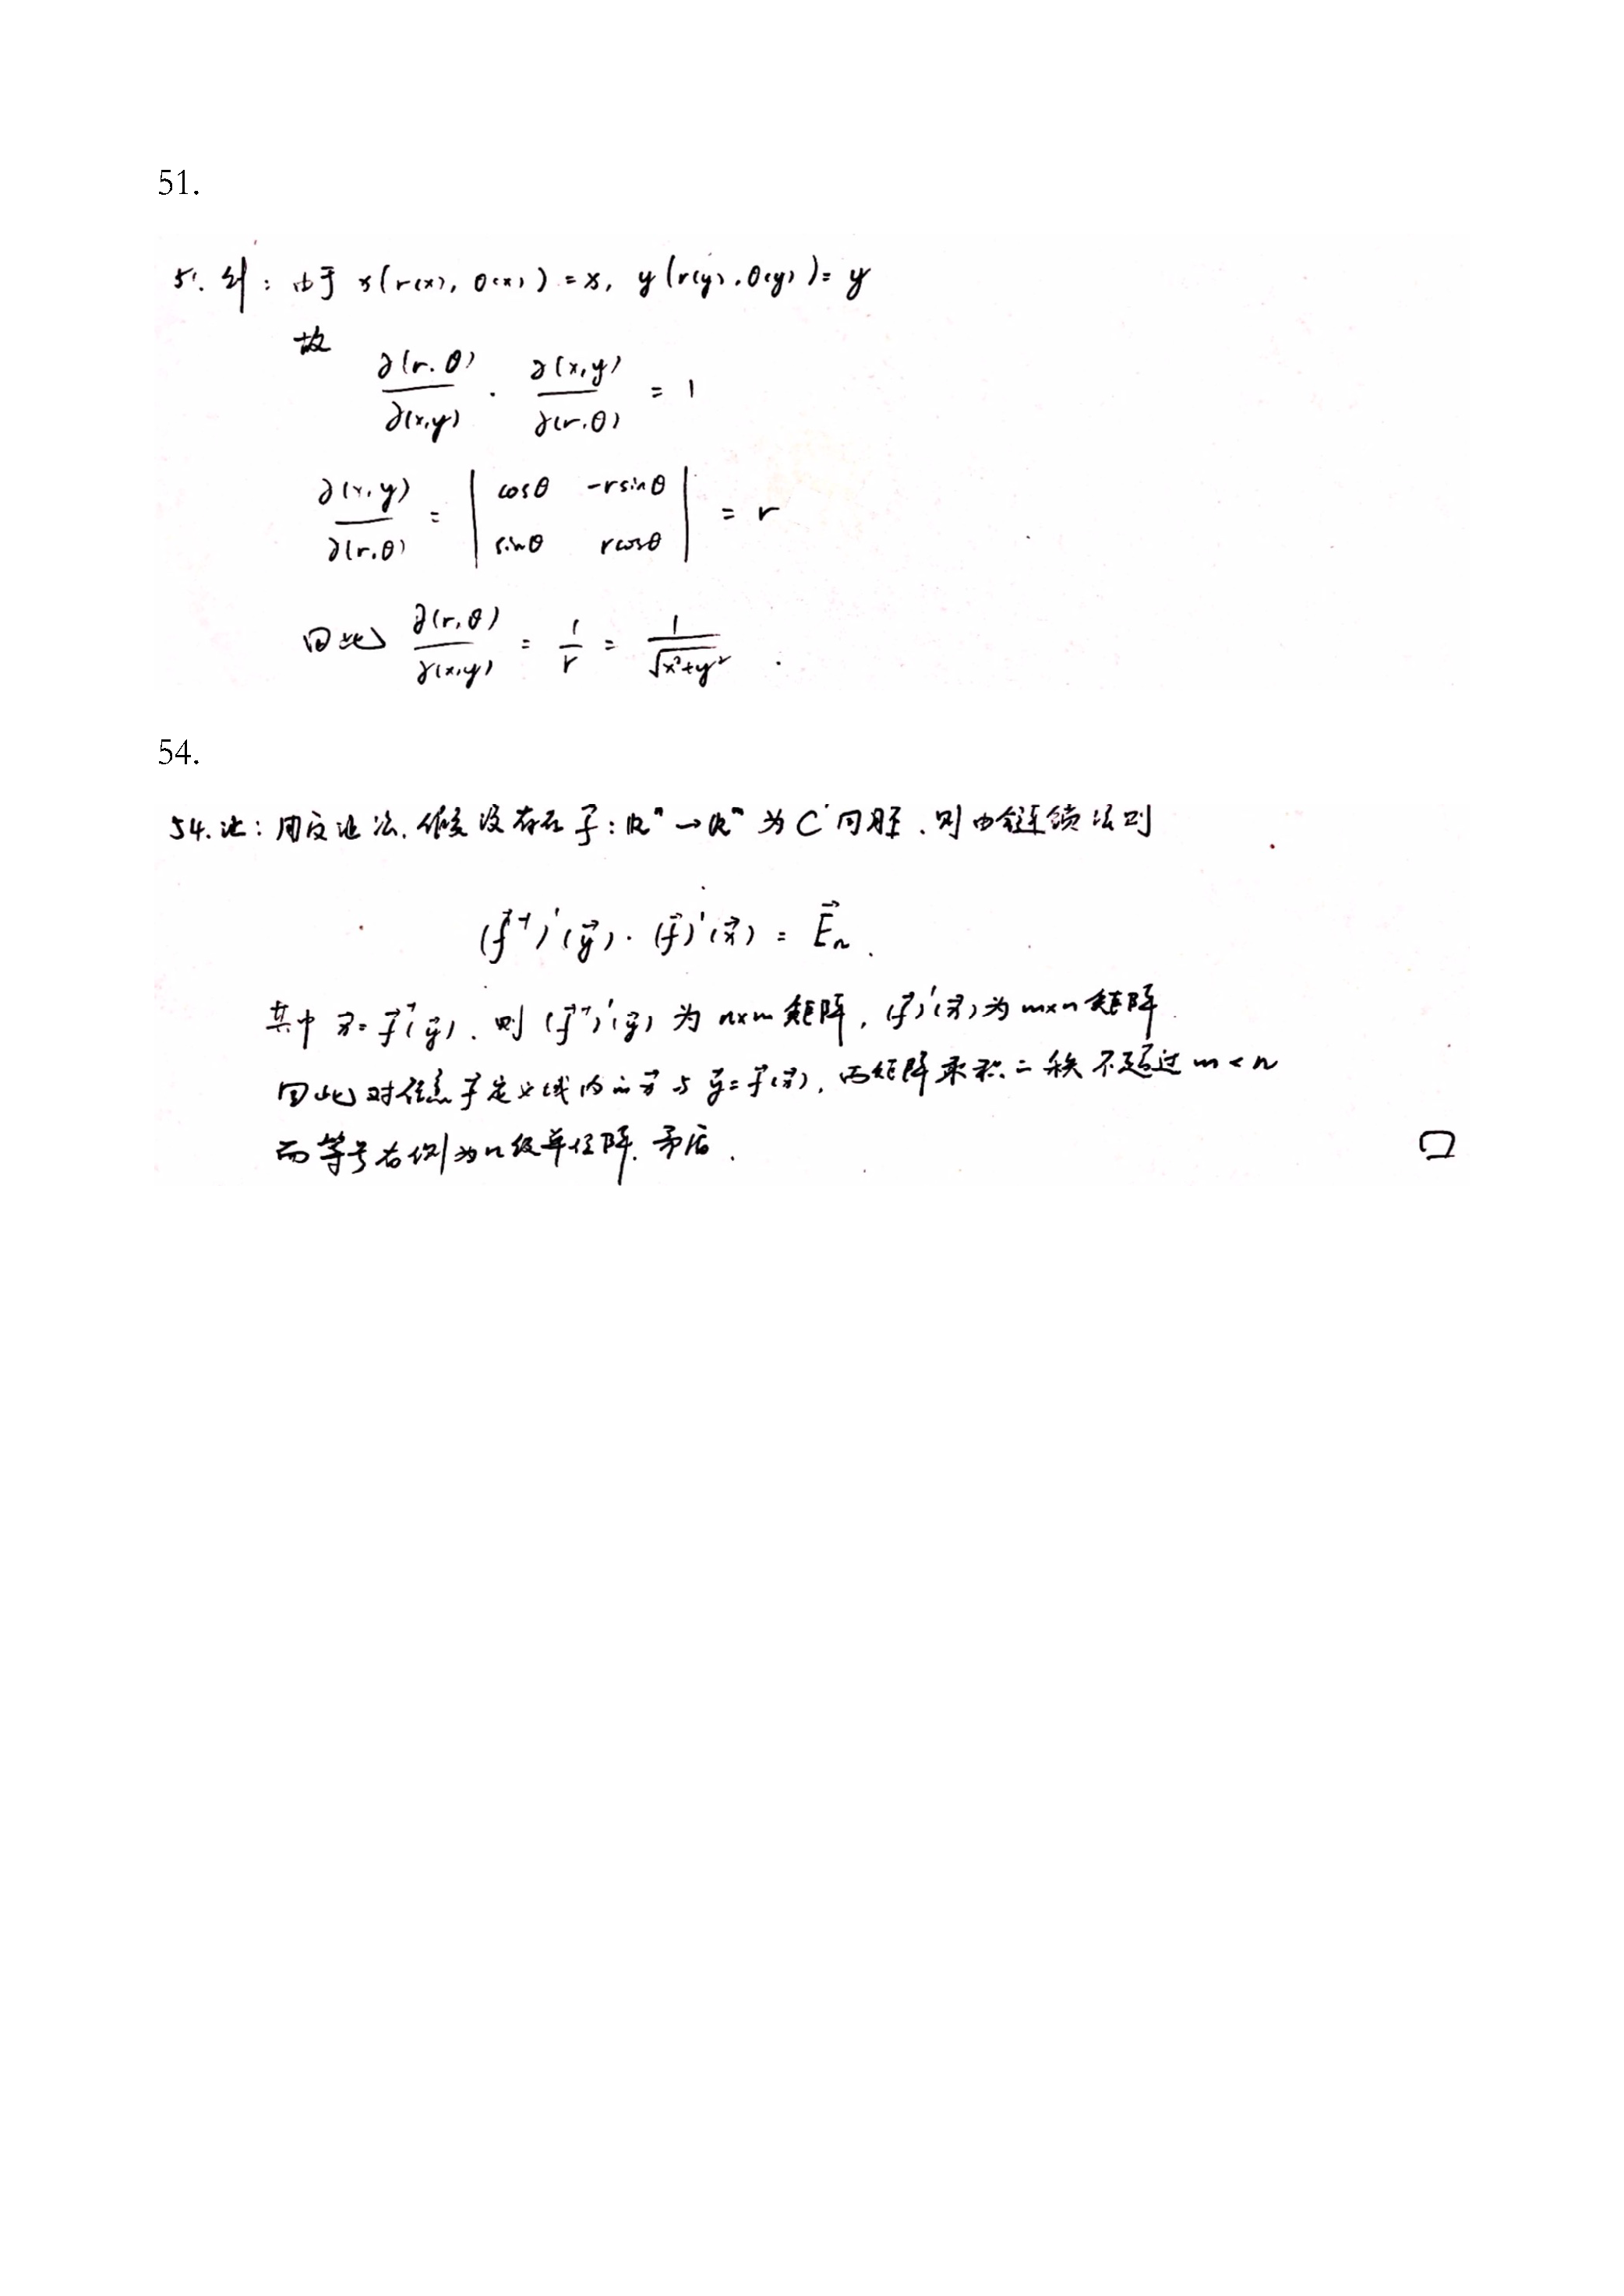 51.
51. 解：由于 x(r(x), θ(x)) = x, y(r(y), θ(y)) = y
故
∂(r,θ)/∂(x,y) · ∂(x,y)/∂(r,θ) = 1
∂(x,y)/∂(r,θ) = | cosθ -rsinθ ; sinθ rcosθ | = r
因此 ∂(r,θ)/∂(x,y) = 1/r = 1/√(x²+y²) .
54.
54. 证：用反证法. 假设存在 f⃗: ℝⁿ → ℝᵐ 为 C¹ 同胚. 则由链锁法则
(f⃗⁻¹)'(y⃗) · (f⃗)'(x⃗) = E⃗ₙ .
其中 x⃗ = f⃗⁻¹(y⃗). 则 (f⃗⁻¹)'(y⃗) 为 n×m 矩阵, (f⃗)'(x⃗) 为 m×n 矩阵.
因此对任意 f⃗ 定义域内的 x⃗ 与 y⃗ = f⃗(x⃗), 两矩阵乘积之秩不超过 m < n
而等号右侧为 n 级单位阵. 矛盾. □